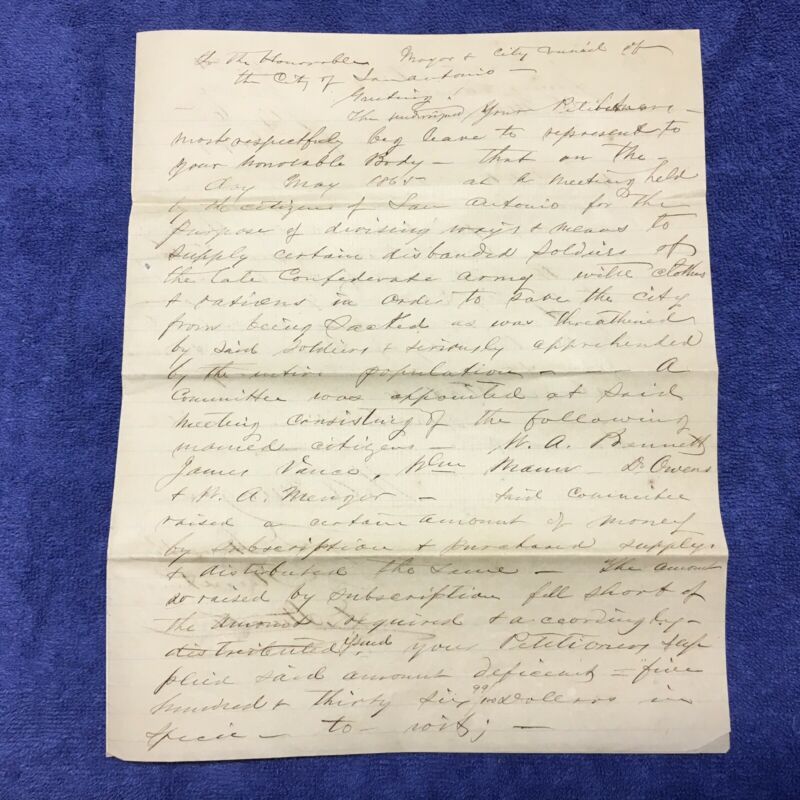 To the Honorable Mayor & City Council of
the City of San Antonio —
Greeting!
The undersigned Your Petitioners —
most respectfully beg leave to represent to
your Honorable Body — that on the —
day May 1865 at a meeting held
by the citizens of San Antonio for the
purpose of divising ways & means to
supply certain disbanded soldiers of
the late Confederate army with clothes
& rations in order to save the city
from being sacked as was threathened
by said soldiers & seriously apprehended
by the entire population — — A
Committee was appointed at said
meeting consisting of the following
named citizens — W. A. Bennett
James Vance, Wm Mann Dr Owens
& W. A. Menger — Said committee
raised a certain amount of money
by subscription & purchased supply.
& distributed the same — The amount
so raised by subscription fell short of
the amount required & accordingly —
distributed your Petitioners sup
plied said amount deficient = five
hundred & thirty six 99/100 dollars in
specie — to — wit; —